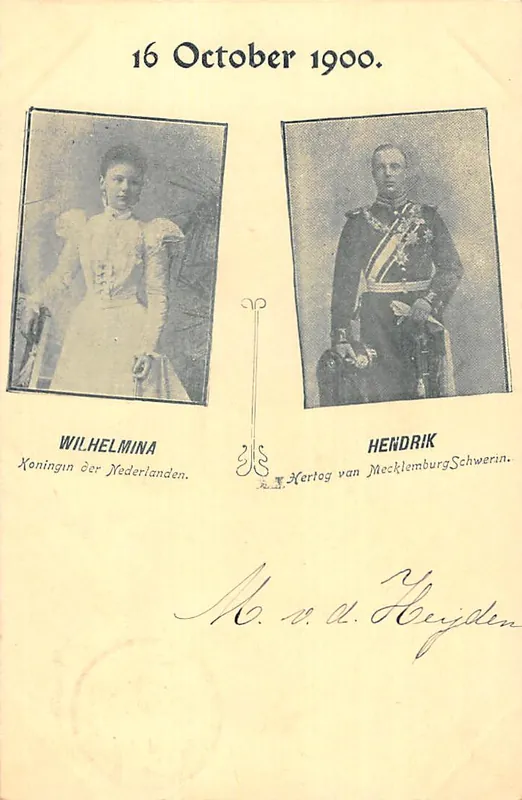 16 October 1900.
WILHELMINA
Koningin der Nederlanden.
HENDRIK
Hertog van Mecklemburg Schwerin.
M. v. d. Heijden